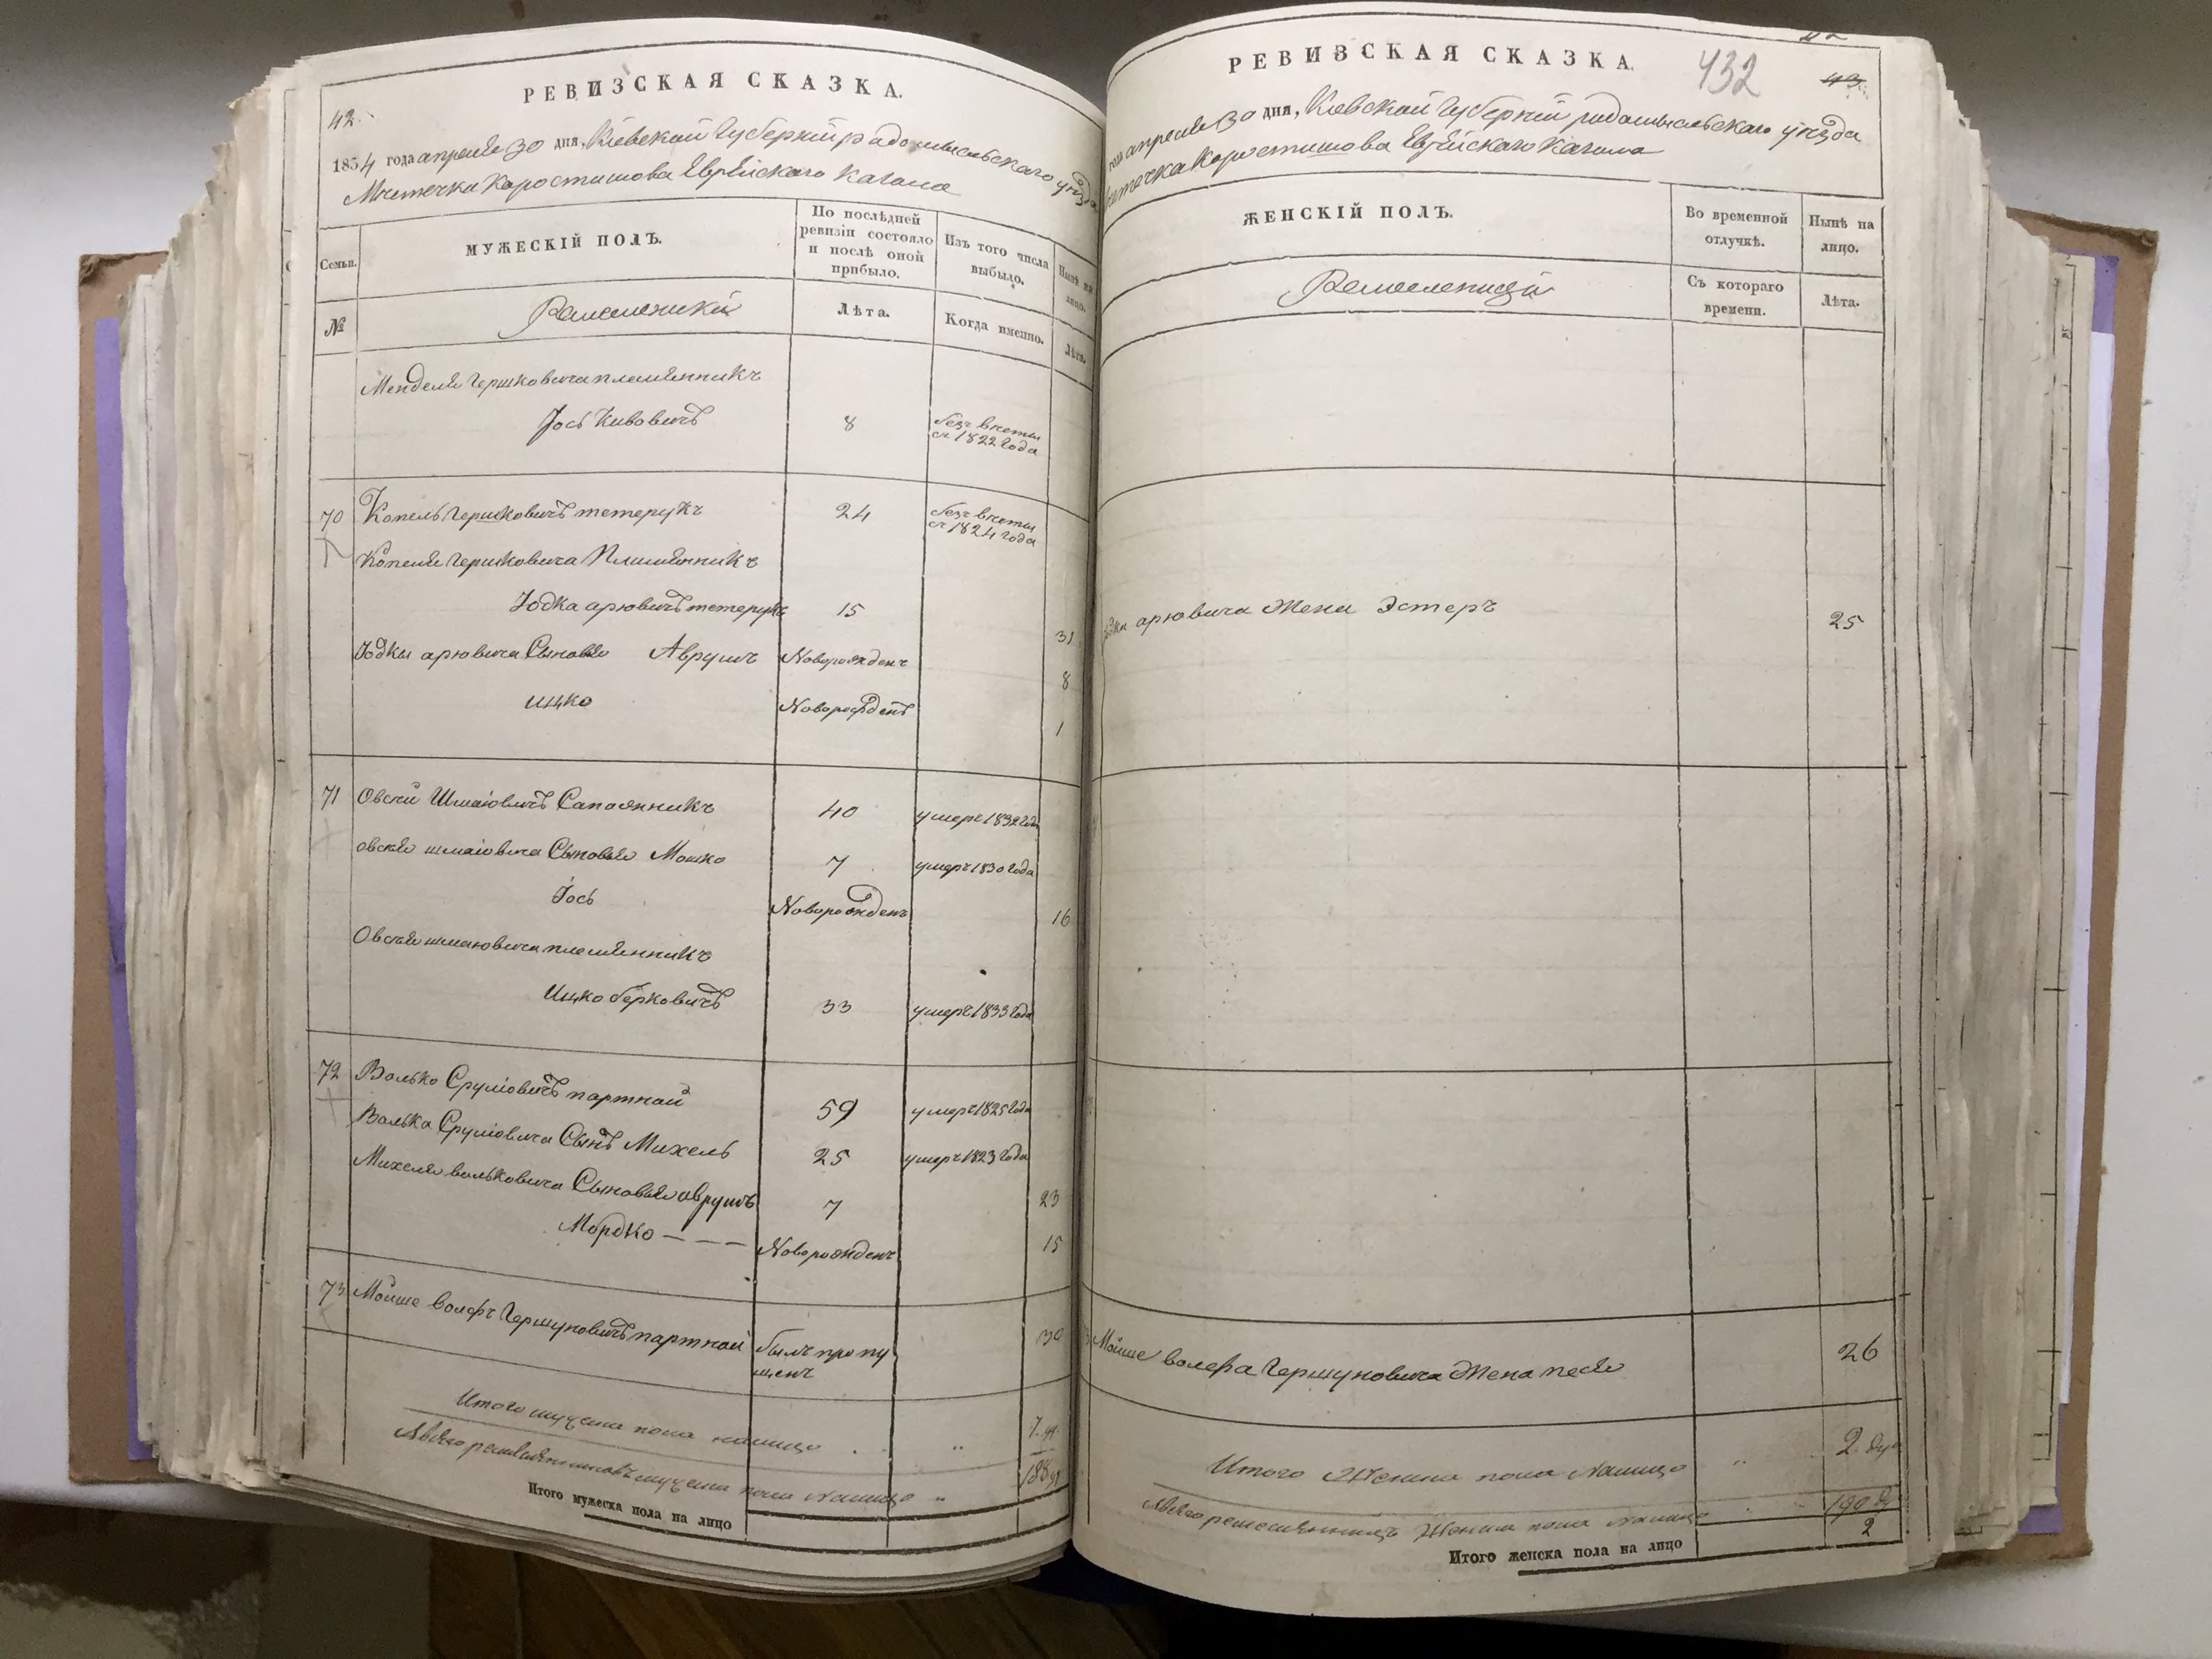 РЕВИЗСКАЯ СКАЗКА.
42
1834 года апреля 30 дня, Кіевской Губерніи радомысльскаго уѣзда
Мѣстечка Коростишова Еврейскаго Кагала
Семьи.
МУЖЕСКІЙ ПОЛЪ.
По послѣдней ревизіи состояло и послѣ оной прибыло.
Изъ того числа выбыло.
Нынѣ на лицо.
№
Лѣта.
Когда именно.
Лѣта.
Менделя Гершковича племянникъ
Іось Кивовичъ 8 безъ вѣсти съ 1822 года
70 Копель Гершковичъ тетерукъ 24 безъ вѣсти съ 1824 года
Копеля Гершковича Племянникъ
Іодка арювичъ тетерукъ 15 31
Іодки арювича Сыновья Аврумъ Новорожденъ 8
ицко Новорожденъ 1
71 Овсѣй Шмаіовичъ Сапожникъ 40 умеръ 1832 года
овсѣя шмаіовича Сыновья Мошко 7 умеръ 1830 года
Іось Новорожденъ 16
Овсѣя шмаювича племянникъ
Ицко берковичъ 33 умеръ 1833 года
72 Волько Сруліовичъ партной 59 умеръ 1825 года
Волька Сруліовича Сынъ Михель 25 умеръ 1823 года
Михеля вольковича Сыновья аврумъ 7 23
Мордко — — — Новорожденъ 15
73 Мойше волфъ Гершуновичъ партной былъ пропущенъ 30
Итого мужеска пола налицо 7
Итого мужеска пола на лицо
РЕВИЗСКАЯ СКАЗКА.
432
года апреля 30 дня, Кіевской Губерніи радомысльскаго уѣзда
Мѣстечка Коростишова Еврейскаго Кагала
ЖЕНСКІЙ ПОЛЪ.
Во временной отлучкѣ.
Нынѣ на лицо.
Съ котораго времени.
Лѣта.
арювича Жена Эстеръ 25
Мойше волфа Гершуновича Жена песя 26
Итого Женска пола налицо 2 душ
2
Итого женска пола на лицо